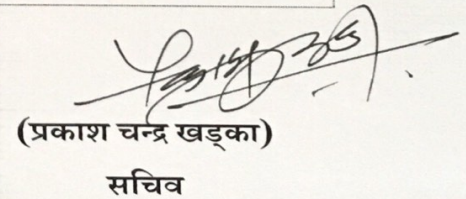 (प्रकाश चन्द्र खड्का)
सचिव